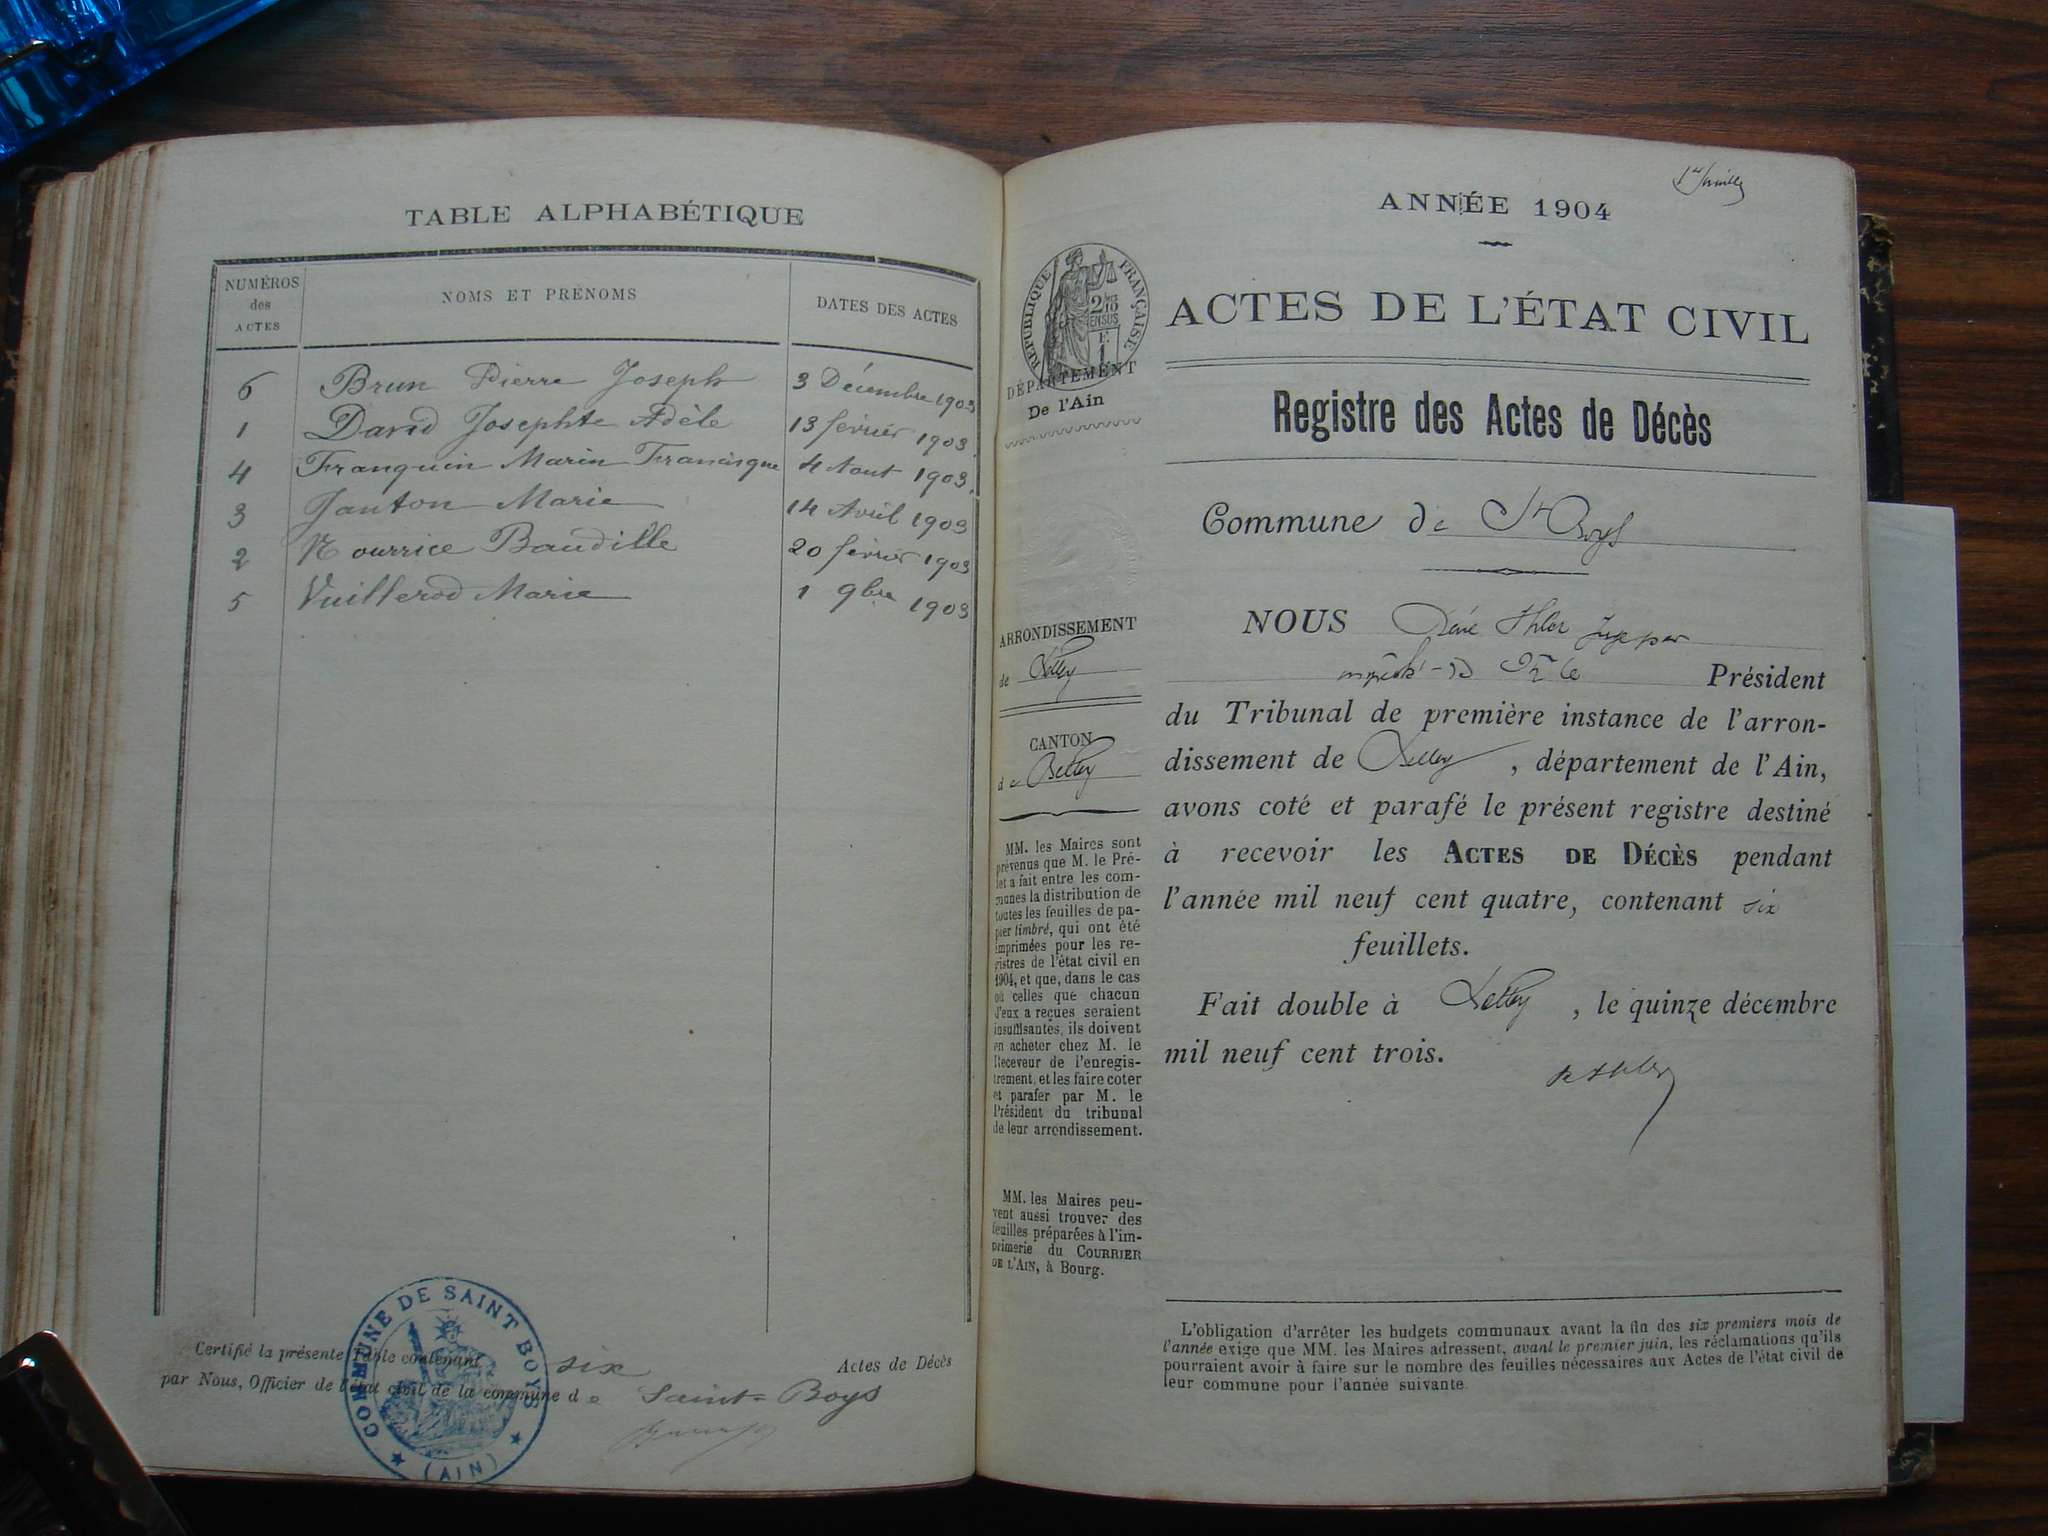 TABLE ALPHABÉTIQUE
NUMÉROS
des
ACTES
NOMS ET PRÉNOMS
DATES DES ACTES
6 Brun Pierre Joseph 3 Décembre 1903
1 David Josephte Adèle 13 février 1903
4 Franquin Marin Francisque 4 Aout 1903
3 Janton Marie 14 Avril 1903
2 Nourrice Baudille 20 février 1903
5 Vuillerod Marie 1 9bre 1903
Certifié la présente Table contenant six Actes de Décès
par Nous, Officier de l'état civil de la commune de Saint-Boys
COMMUNE DE SAINT BOYS
(AIN)
ANNÉE 1904
RÉPUBLIQUE FRANÇAISE
2/10
EN SUS
ACTES DE L'ÉTAT CIVIL
DÉPARTEMENT
De l'Ain
Registre des Actes de Décès
Commune de St Boys
ARRONDISSEMENT
de Belley
CANTON
de Belley
MM. les Maires sont
prévenus que M. le Pré-
fet a fait entre les com-
munes la distribution de
toutes les feuilles de pa-
pier timbré, qui ont été
imprimées pour les re-
gistres de l'état civil en
1904, et que, dans le cas
où celles que chacun
d'eux a reçues seraient
insuffisantes, ils doivent
en acheter chez M. le
Receveur de l'enregis-
trement, et les faire coter
et parafer par M. le
Président du tribunal
de leur arrondissement.
MM. les Maires peu-
vent aussi trouver des
feuilles préparées à l'im-
primerie du COURRIER
DE L'AIN, à Bourg.
NOUS
Président
du Tribunal de première instance de l'arron-
dissement de Belley, département de l'Ain,
avons coté et parafé le présent registre destiné
à recevoir les ACTES DE DÉCÈS pendant
l'année mil neuf cent quatre, contenant six
feuillets.
Fait double à Belley, le quinze décembre
mil neuf cent trois.
L'obligation d'arrêter les budgets communaux avant la fin des six premiers mois de
l'année exige que MM. les Maires adressent, avant le premier juin, les réclamations qu'ils
pourraient avoir à faire sur le nombre des feuilles nécessaires aux Actes de l'état civil de
leur commune pour l'année suivante.